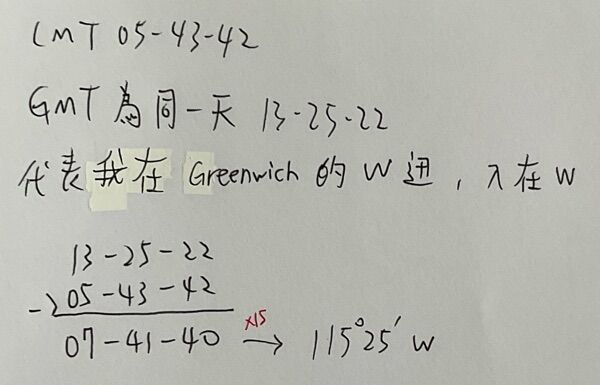 LMT 05-43-42
GMT 為同一天 13-25-22
代表我在 Greenwich 的 W 边, λ在 W
13-25-22
-) 05-43-42
07-41-40 ×15 → 115°25′ W